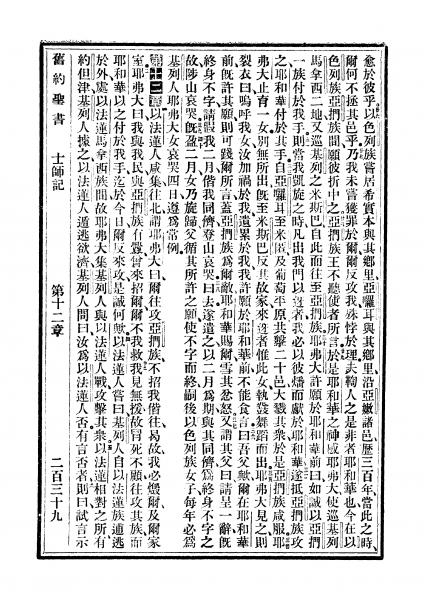 愈於彼乎以色列族嘗居希實本與其鄉里亞囉耳與其鄉里沿亞嫩諸邑歷三百年當此之時
爾何不拯其邑乎乃我未嘗獲罪於爾爾反攻我殊悖於理夫鞫人之是非者耶和華也今在以
色列族亞捫族間願彼折中之亞捫族王不聽使者所言於是耶和華之神感耶弗大使巡基列
馬拿西二地又巡基列之米斯巴自此而往至亞捫族耶弗大許願於耶和華前曰如誠以亞捫
一族付於我手則當我凱旋之時凡出我門以迓者我必以彼燔而獻於耶和華遂抵亞捫族攻
之耶和華付於其手自亞囉耳至米匿及葡萄平原共擊二十邑大戮其衆於是亞捫族咸服耶
弗大止育一女別無所出旣至米斯巴反其故家來迓者惟此女執鼗舞蹈而出耶弗大見之則
裂衣曰嗚呼我女汝加禍於我遺累於我我許願於耶和華前不能食言曰吾父歟爾在耶和華
前旣許其願則可踐爾所言蓋亞捫族爲爾敵耶和華賜爾雪其忿怒又請其父曰請呈一辭旣
終身不字請假我二月偕我同儕登山哀哭曰去遂遣之以二月爲期與其同儕爲終身不字之
故陟山哀哭旣盈二月女乃旋歸父循其所許之願使不字而終嗣後以色列族女子每年必爲
基列人耶弗大女哀哭四日遵爲常例
第十二章以法蓮人咸集往北謂耶弗大曰爾往攻亞捫族不招我偕往曷故我必燬爾及爾家
室耶弗大曰我與我民與亞捫族有釁曾來招爾爾不我救我見無援故冒死不顧往攻其族而
耶和華以之付於我手迄於今日爾反來攻是誠何歟以法蓮人嘗曰基列人自以法蓮族逋逃
於外處以法蓮馬拿西族間故耶弗大集基列人與以法蓮人戰攻擊其衆以法蓮相對之所有
約但津基列人據之以法蓮人遁逃欲濟基列人問曰汝爲以法蓮人否有言否者則曰試言示
舊約聖書 士師記 第十二章 二百三十九